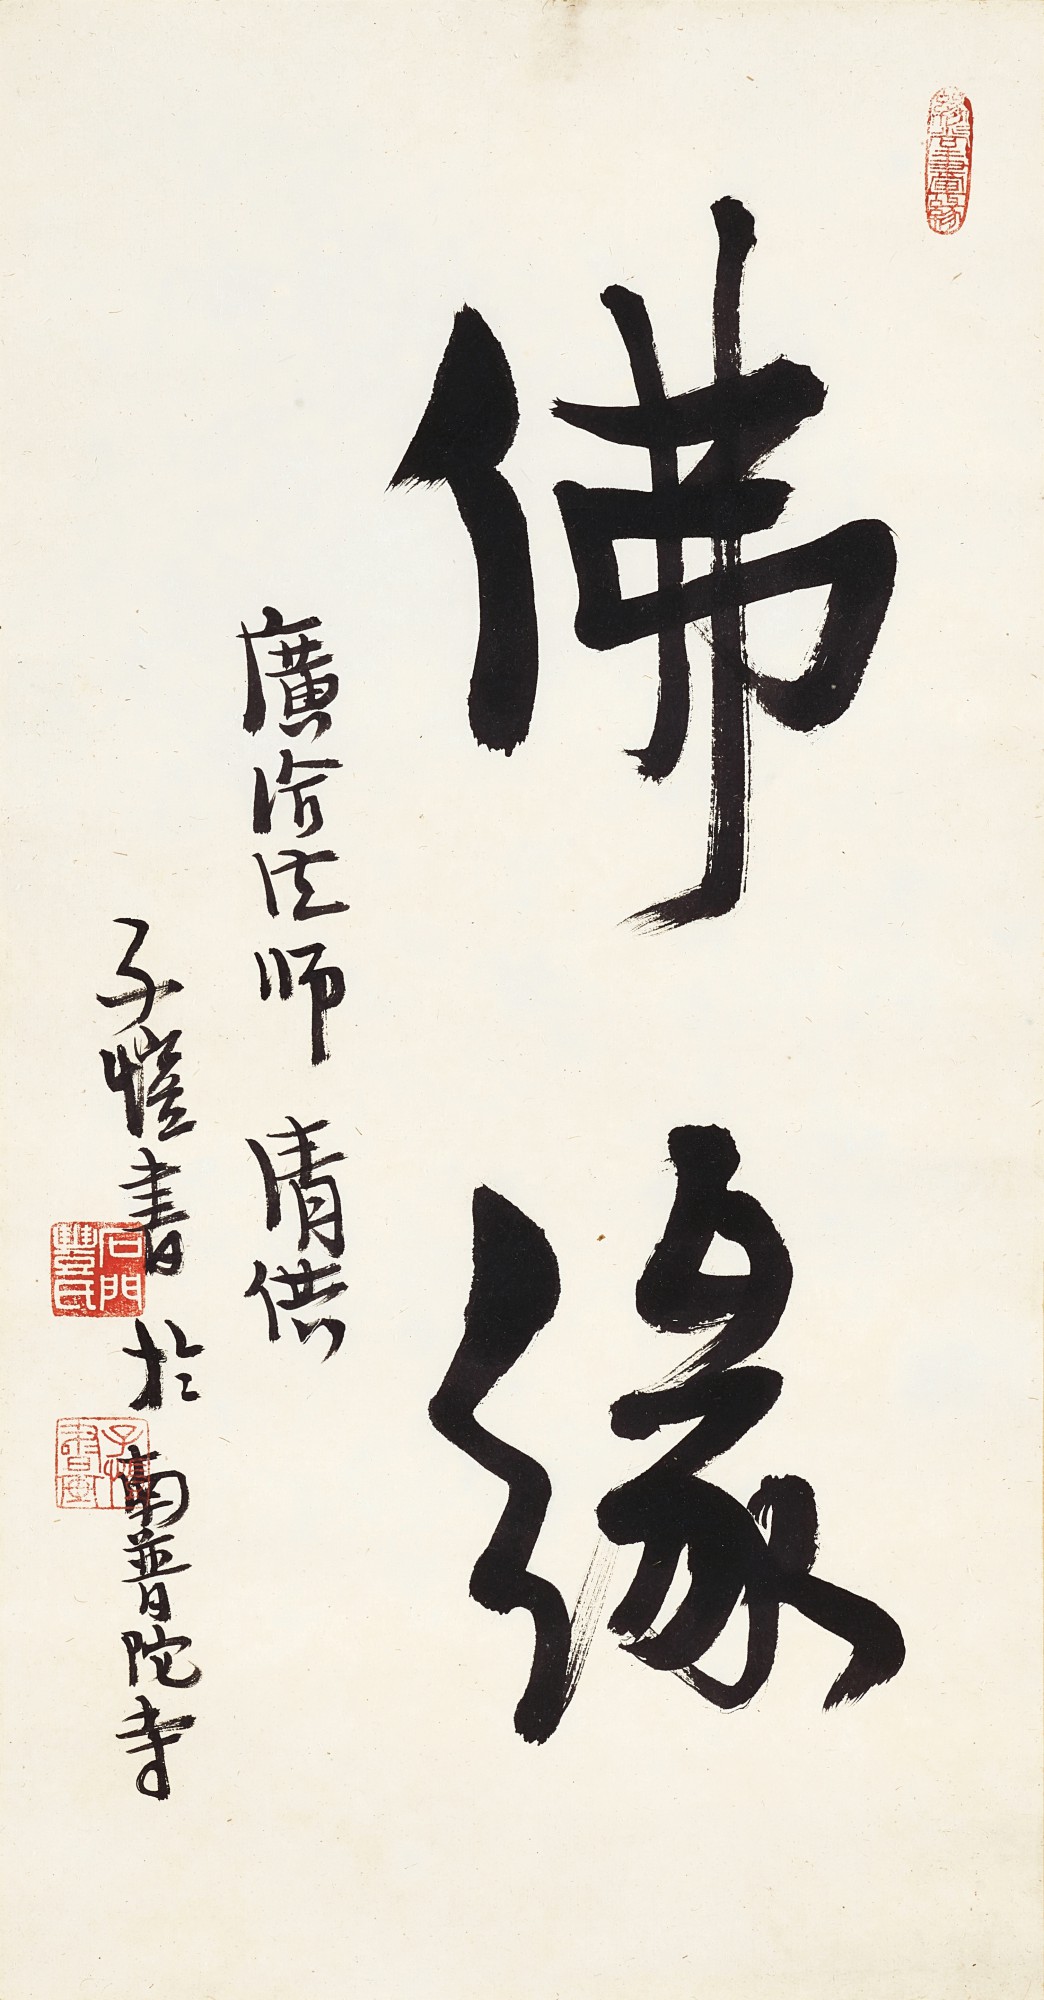 佛緣
廣洽法師 清供
子愷書於南普陀寺
石門豐氏
子愷書畫